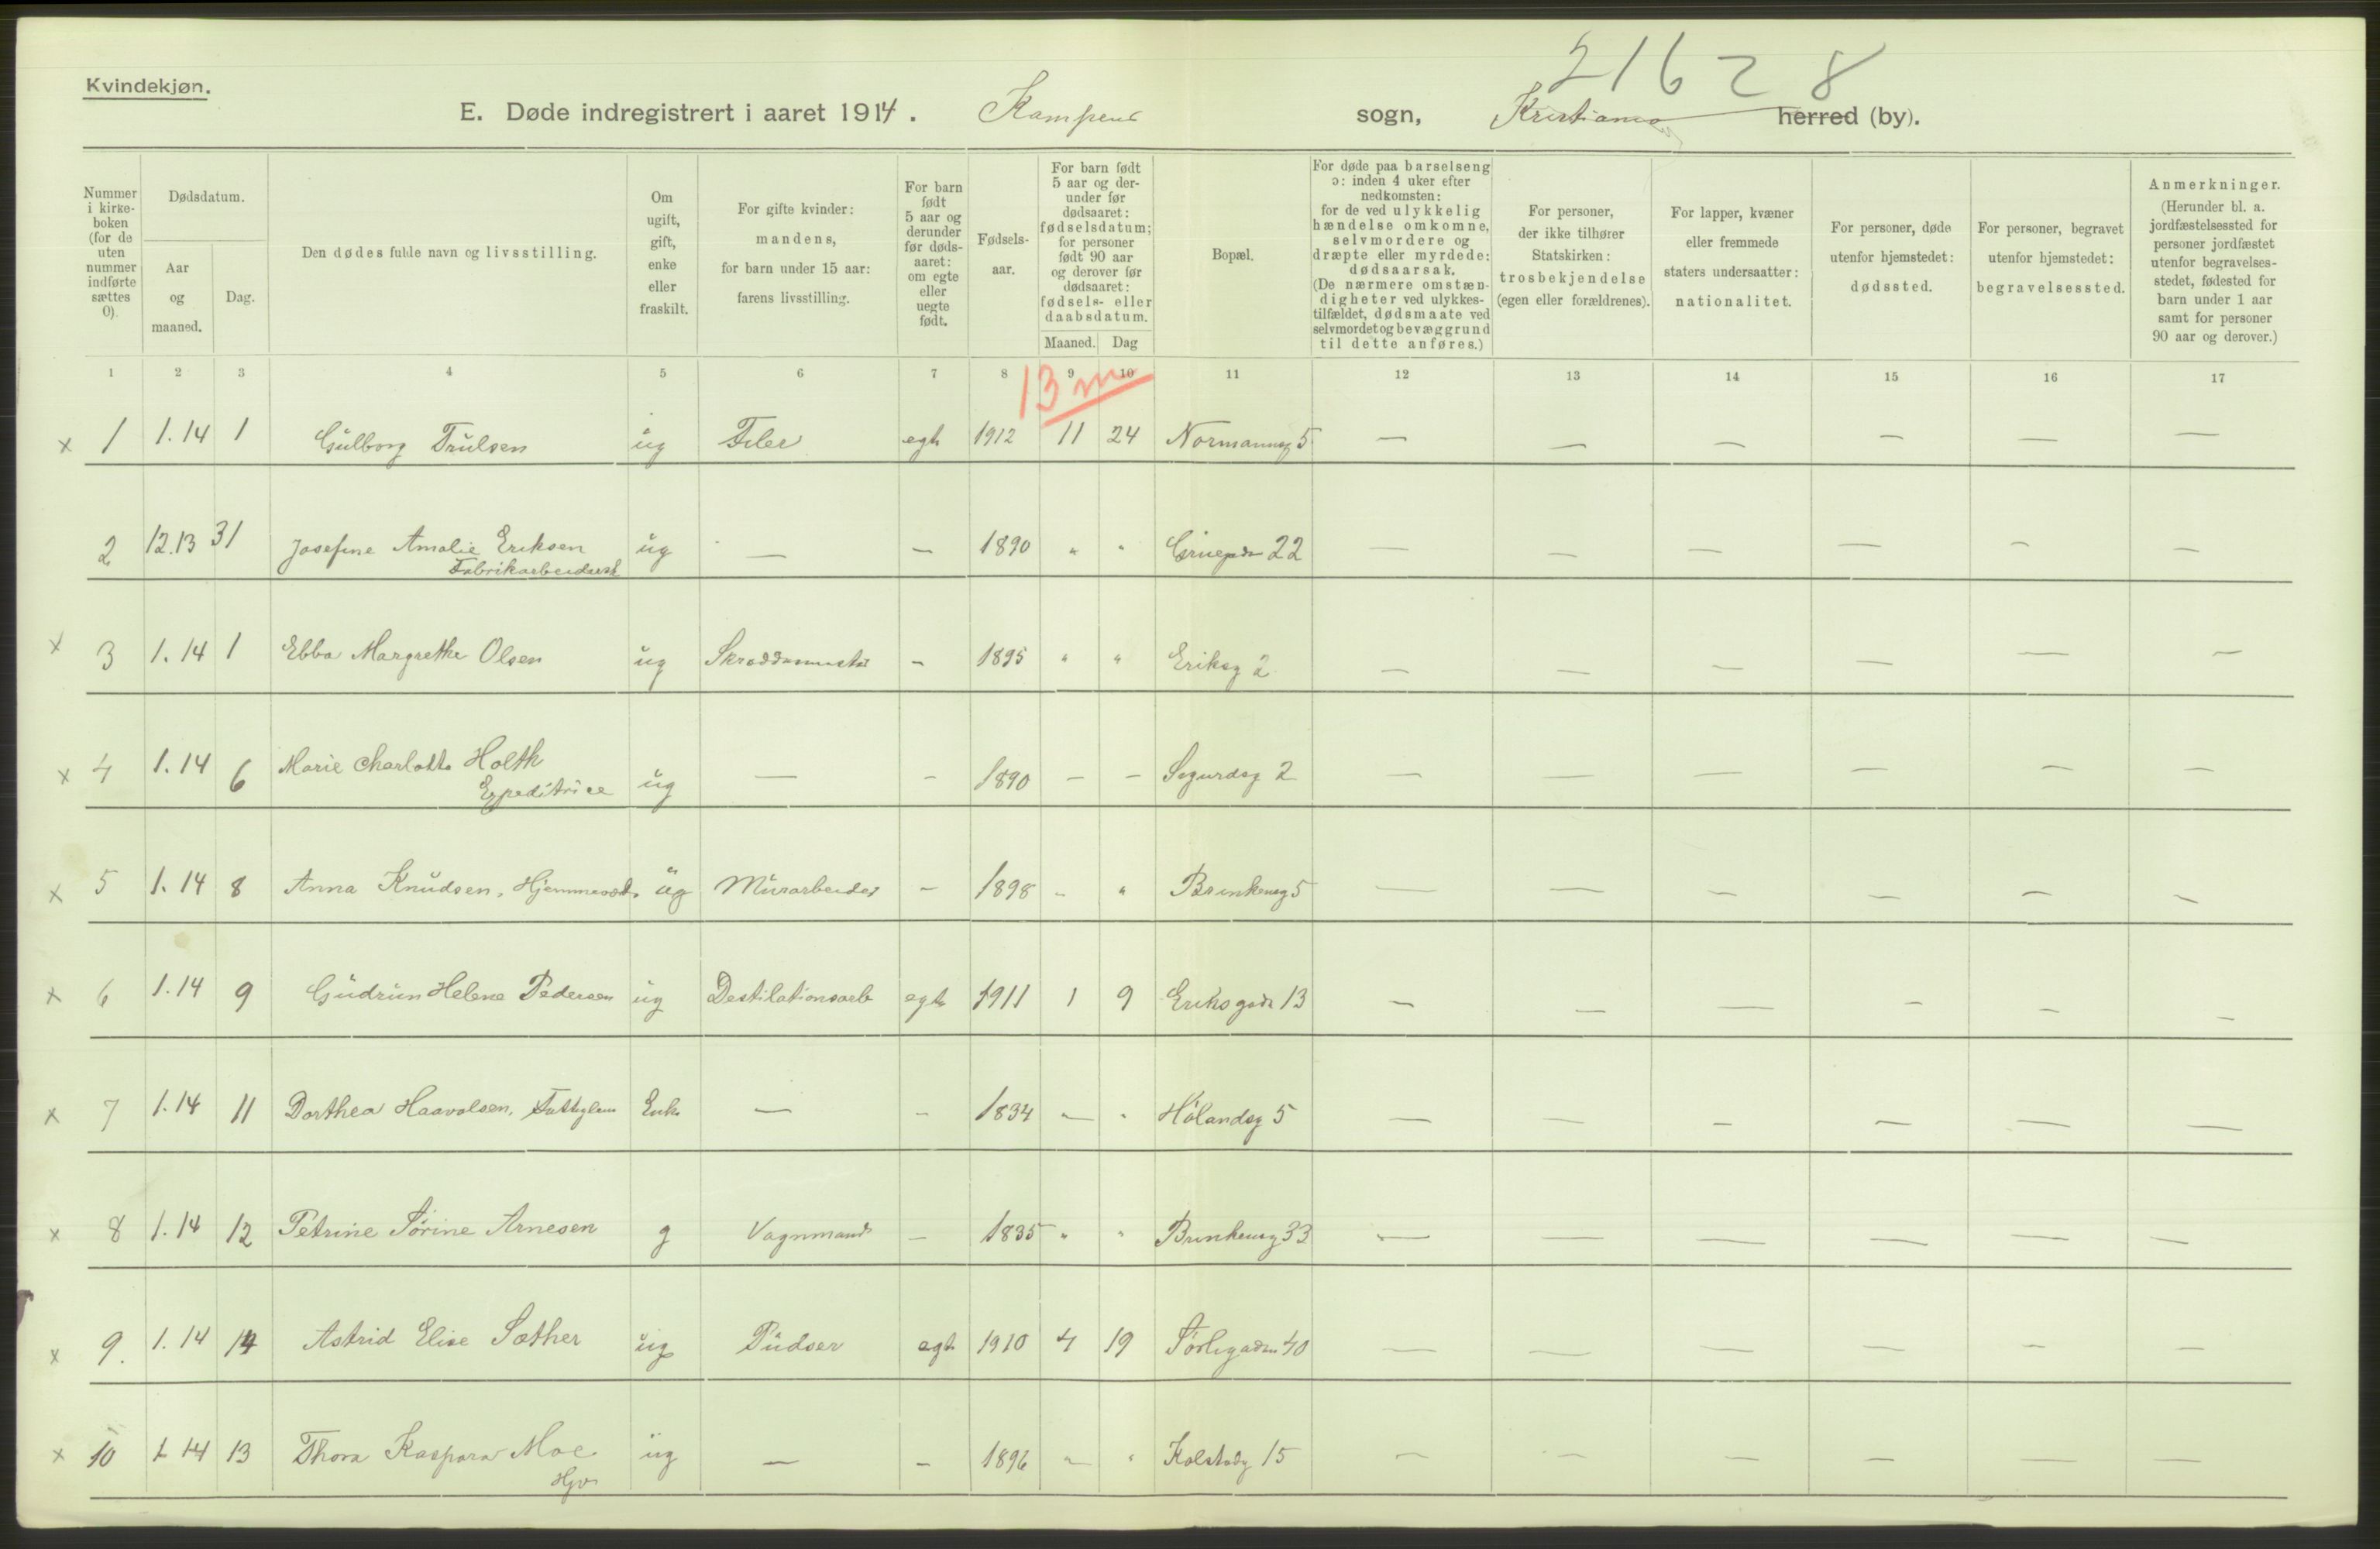 21628
Kvindekjøn.
E. Døde indregistrert i aaret 1914. Kampens sogn, Kristiania herred (by).
Nummer i kirke-boken (for de uten nummer indførte sættes 0).
Dødsdatum.
Aar og maaned.
Dag.
Den dødes fulde navn og livsstilling.
Om ugift, gift, enke eller fraskilt.
For gifte kvinder: mandens, for barn under 15 aar: farens livsstilling.
For barn født 5 aar og derunder før døds-aaret: om egte eller uegte født.
Fødsels-aar.
For barn født 5 aar og der-under før dødsaaret: fødselsdatum; for personer født 90 aar og derover før dødsaaret: fødsels- eller daabsdatum.
Maaned. Dag
Bopæl.
For døde paa barselseng ɔ: inden 4 uker efter nedkomsten: for de ved ulykkelig hændelse omkomne, selvmordere og dræpte eller myrdede: dødsaarsak. (De nærmere omstæn-digheter ved ulykkes-tilfældet, dødsmaate ved selvmordet og bevæggrund til dette anføres.)
For personer, der ikke tilhører Statskirken: trosbekjendelse (egen eller forældrenes).
For lapper, kvæner eller fremmede staters undersaatter: nationalitet.
For personer, døde utenfor hjemstedet: dødssted.
For personer, begravet utenfor hjemstedet: begravelsessted.
Anmerkninger. (Herunder bl. a. jordfæstelsessted for personer jordfæstet utenfor begravelses-stedet, fødested for barn under 1 aar samt for personer 90 aar og derover.)
1 2 3 4 5 6 7 8 9 10 11 12 13 14 15 16 17
13 m
x 1 1.14 1 Gulborg Trulsen ug Filer egte 1912 11 24 Normannsg 5 — — — — — —
2 12.13 31 Josefine Amalie Eriksen ug — — 1890 " " Gruegaden 22 — — — — — —
Fabrikarbeiderske
x 3 1.14 1 Ebba Margrethe Olsen ug Skræddermester — 1895 " " Eriksg 2 — — — — — —
x 4 1.14 6 Marie Charlotte Holth ug — — 1890 — — Sigurdsg 2 — — — — — —
Expeditrice
x 5 1.14 8 Anna Knudsen, Hjemmeværd. ug Murarbeider — 1898 - " Brinkensg 5 — — — — — —
x 6 1.14 9 Gudrun Helene Pedersen ug Destilationsarb egte 1911 1 9 Eriksgade 13 — — — — — —
x 7 1.14 11 Dorthea Haavolsen, Fattiglem Enke — — 1834 — " Hölandsg 5 — — — — — —
x 8 1.14 12 Petrine Sørine Arnesen g Vognmand — 1835 " " Brinkensg 33 — — — — — —
x 9. 1.14 14 Astrid Elise Sæther ug Pudser egte 1910 4 19 Sørligaden 40 — — — — — —
x 10 1 14 13 Thora Kaspara Moe ug — — 1896 — " Kolstadg 15 — — — — — —
Hjv.